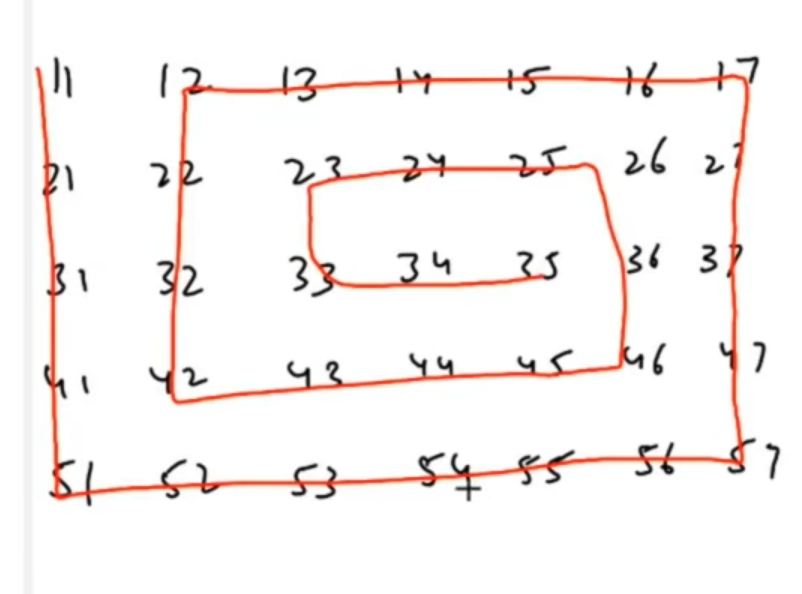 11 12 13 14 15 16 17
21 22 23 24 25 26 27
31 32 33 34 35 36 37
41 42 43 44 45 46 47
51 52 53 54 55 56 57